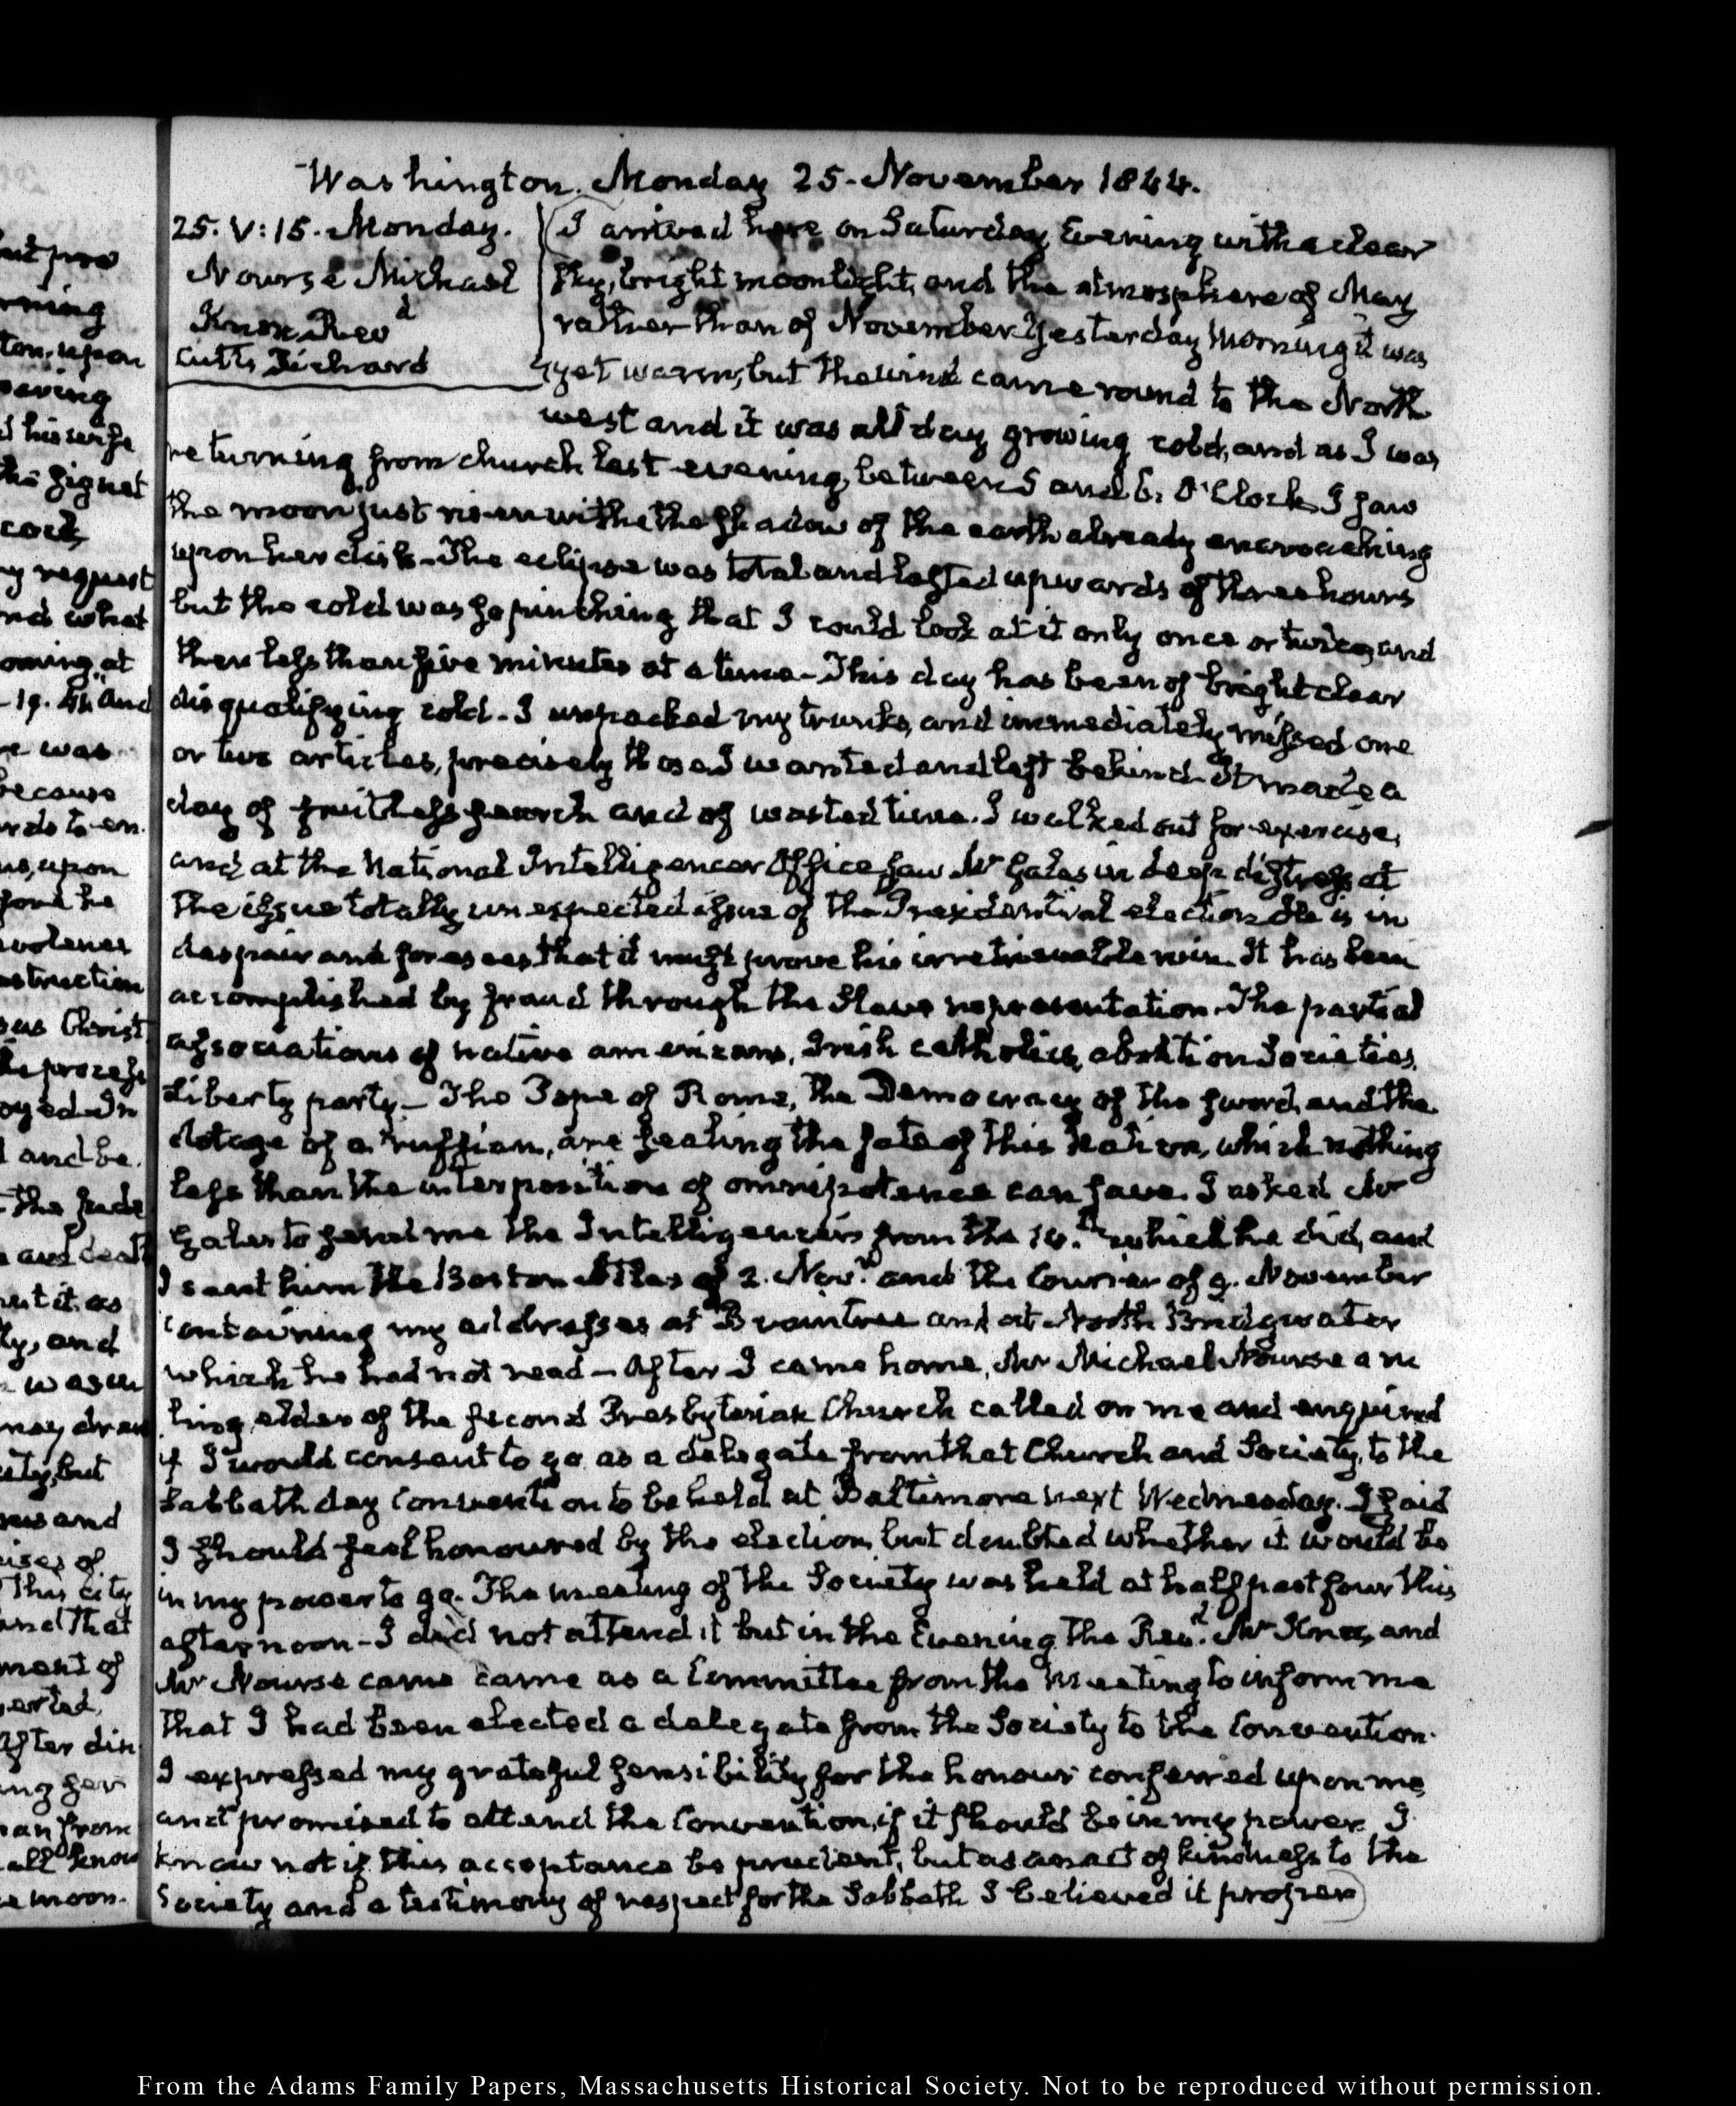 Washington. Monday 25. November 1844.
25. V:15. Monday.
Nourse Michael
Knox Revd
Cutts Richard
I arrived here on Saturday Evening with a clear
sky, bright moonlight, and the atmosphere of May
rather than of November. Yesterday morning it was
yet warm, but the wind came round to the North
west and it was all day growing cold, and as I was
returning from church last evening, between 5 and 6. O'Clock, I saw
the moon just risen with the shadow of the earth already encroaching
upon her disk. The eclipse was total and lasted upwards of three hours
but the cold was so pinching that I could look at it only once or twice, and
then less than five minutes at a time. This day has been of bright clear
disqualifying cold. I unpacked my trunks, and immediately missed one
or two articles, precisely those I wanted and left behind. It made a
day of fruitless search and of wasted time. I walked out for exercise,
and at the National Intelligencer Office saw Mr Gales in deep distress at
the issue totally unexpected issue of the Presidential election. He is in
despair and foresees that it must prove his irretrievable ruin. It has been
accomplished by fraud through the Slave representation. The partial
associations of native americans, Irish catholics, abolition Societies,
Liberty party— The Pope of Rome, the Democracy of the sword, and the
dotage of a ruffian, are sealing the fate of this Nation, which nothing
less than the interposition of omnipotence can save. I asked Mr
Gales to send me the Intelligencers from the 14.th which he did, and
I sent him the Boston Atlas of 2. Novr. and the Courier of 9. November
containing my addresses at Braintree and at North Bridgwater
which he had not read— After I came home, Mr Michael Nourse a ru
ling elder of the second Presbyterian Church called on me and enquired
if I would consent to go as a delegate from that Church and Society, to the
Sabbath day Convention to be held at Baltimore next Wednesday. I said
I should feel honoured by the election, but doubted whether it would be
in my power to go. The meeting of the Society was held at half past four this
afternoon— I did not attend it but in the Evening the Revd. Mr Knox, and
Mr Nourse came came as a Committee from the meeting to inform me
that I had been elected a delegate from the Society to the Convention.
I expressed my grateful sensibility for the honour conferred upon me,
and promised to attend the Convention, if it should be in my power. I
know not if this acceptance be prudent, but as an act of kindness to the
Society and a testimony of respect for the Sabbath I believed it proper
From the Adams Family Papers, Massachusetts Historical Society. Not to be reproduced without permission.